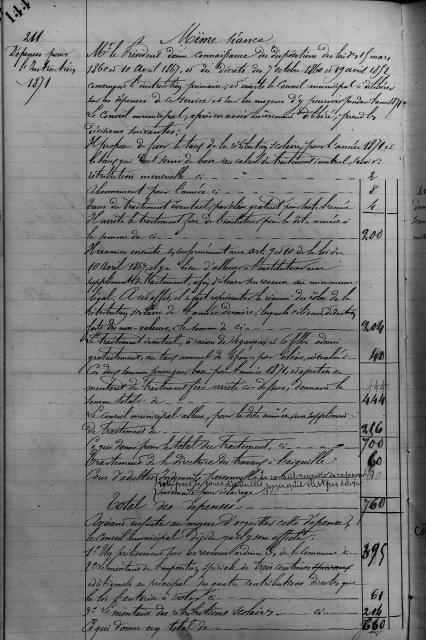 144
211
Dépenses pour
l'Instruction
1871
Même séance
Mr le Président donne connaissance des dispositions des lois du 15 mars
1850 et 10 Avril 1867, et des décrets des 7 octobre 1850 et 19 avril 1862
concernant l'instruction primaire, et invite le Conseil municipal à délibérer
sur les dépenses de ce service et sur les moyens d'y pourvoir pendant l'année 1871
Le Conseil municipal, après en avoir mûrement délibéré, prend les
décisions suivantes:
Il propose de fixer le taux de la rétribution scolaire, pour l'année 1871 et
le taux qui doit servir de base au calcul du traitement éventuel, savoir:
rétribution mensuelle ci 2
Abonnement pour l'année ci 8
taux du traitement éventuel, par élève gratuit pour toute l'année
Il arrête le traitement fixe de l'instituteur pour la dite année à
la somme de ci 200
Il examine ensuite si, conformément aux art. 9 et 10 de la loi du
10 Avril 1867, il y a lieu d'allouer à l'instituteur un
supplément de traitement, afin d'élever son revenu au minimum
légal. A cet effet, il se fait représenter le résumé des rôles de la
rétribution scolaire de l'année dernière, lesquels s'élèvent, déduction
faite des non-valeurs, à la somme de ci 204
Le traitement éventuel, à raison de garçons et filles admis
gratuitement, au taux annuel de par élève, est évalué à 40
Ces deux sommes prises pour base pour l'année 1871, et ajoutées au
montant du traitement fixe arrêté ci-dessus, donnent la
somme totale de 444
Le Conseil municipal alloue, pour la dite année un supplément
de traitement de 256
Ce qui donne pour le total du traitement, ci 700
Traitement de la directrice des travaux à l'aiguille 60
Cours d'adultes Indemnité personnelle
Indemnité pour éclairage
Total des dépenses 760
Avisant ensuite au moyen d'acquitter cette dépense,
le Conseil municipal décide qu'il y sera affecté:
1° Un prélèvement sur les revenus ordinaires de la Commune de 395
2° Le montant de l'imposition spéciale de trois centimes
additionnels au principal des quatre contributions directes que
la loi l'autorise à voter ci 61
3° Le montant des rétributions scolaires ci 204
Ce qui donne un total de 660